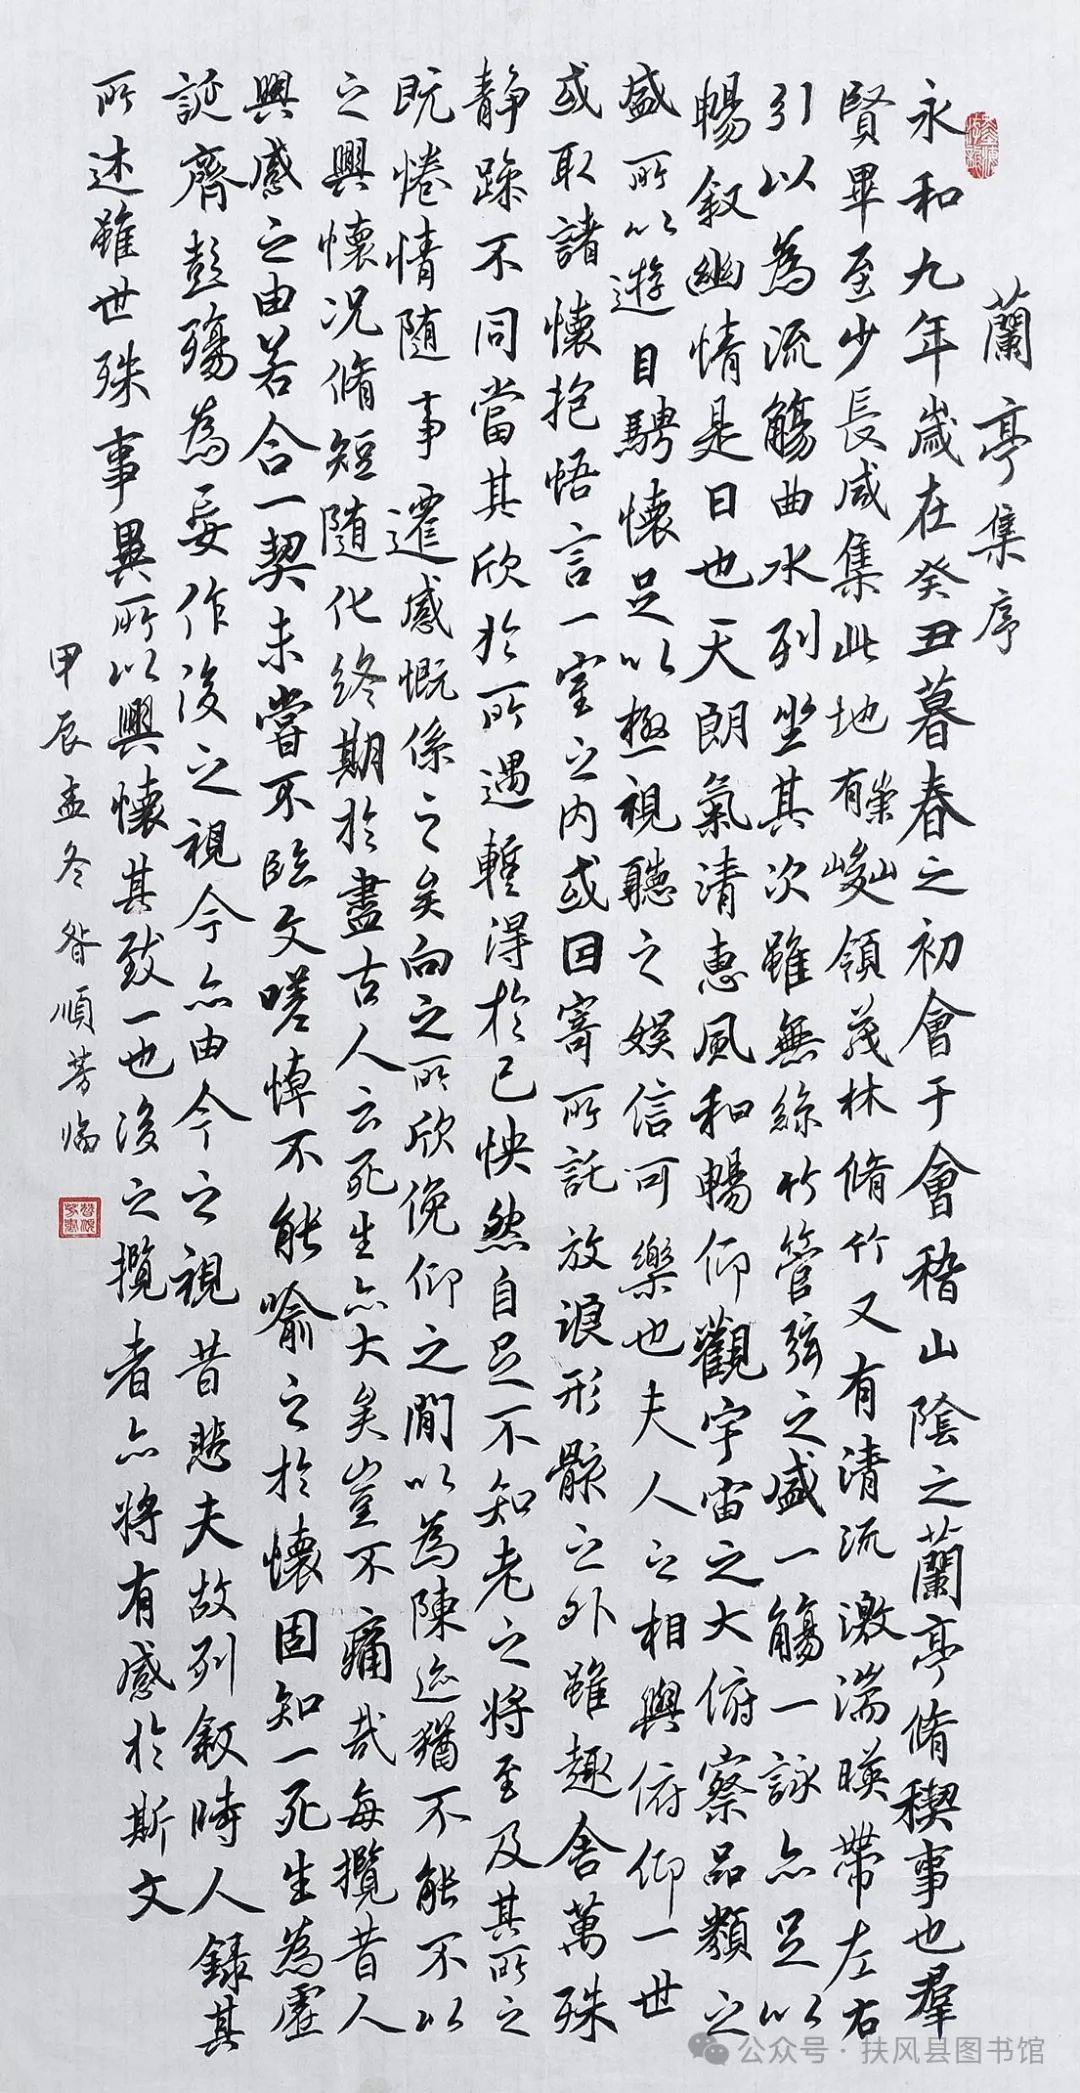 蘭亭集序
永和九年歲在癸丑暮春之初會于會稽山陰之蘭亭脩稧事也羣
賢畢至少長咸集此地有崇山峻領茂林脩竹又有清流激湍暎帶左右
引以為流觴曲水列坐其次雖無絲竹管弦之盛一觴一詠亦足以
暢叙幽情是日也天朗氣清惠風和暢仰觀宇宙之大俯察品類之
盛所以遊目騁懷足以極視聽之娛信可樂也夫人之相與俯仰一世
或取諸懷抱悟言一室之内或因寄所託放浪形骸之外雖趣舍萬殊
静躁不同當其欣於所遇蹔得於己怏然自足不知老之將至及其所之
既惓情隨事遷感慨係之矣向之所欣俛仰之閒以為陳迹猶不能不以
之興懷况脩短隨化終期於盡古人云死生亦大矣豈不痛哉每攬昔人
興感之由若合一契未嘗不臨文嗟悼不能喻之於懷固知一死生為虛
誕齊彭殤為妄作後之視今亦由今之視昔悲夫故列敘時人録其
所述雖世殊事異所以興懷其致一也後之攬者亦將有感於斯文
甲辰孟冬昝順芳臨
公众号·扶风县图书馆